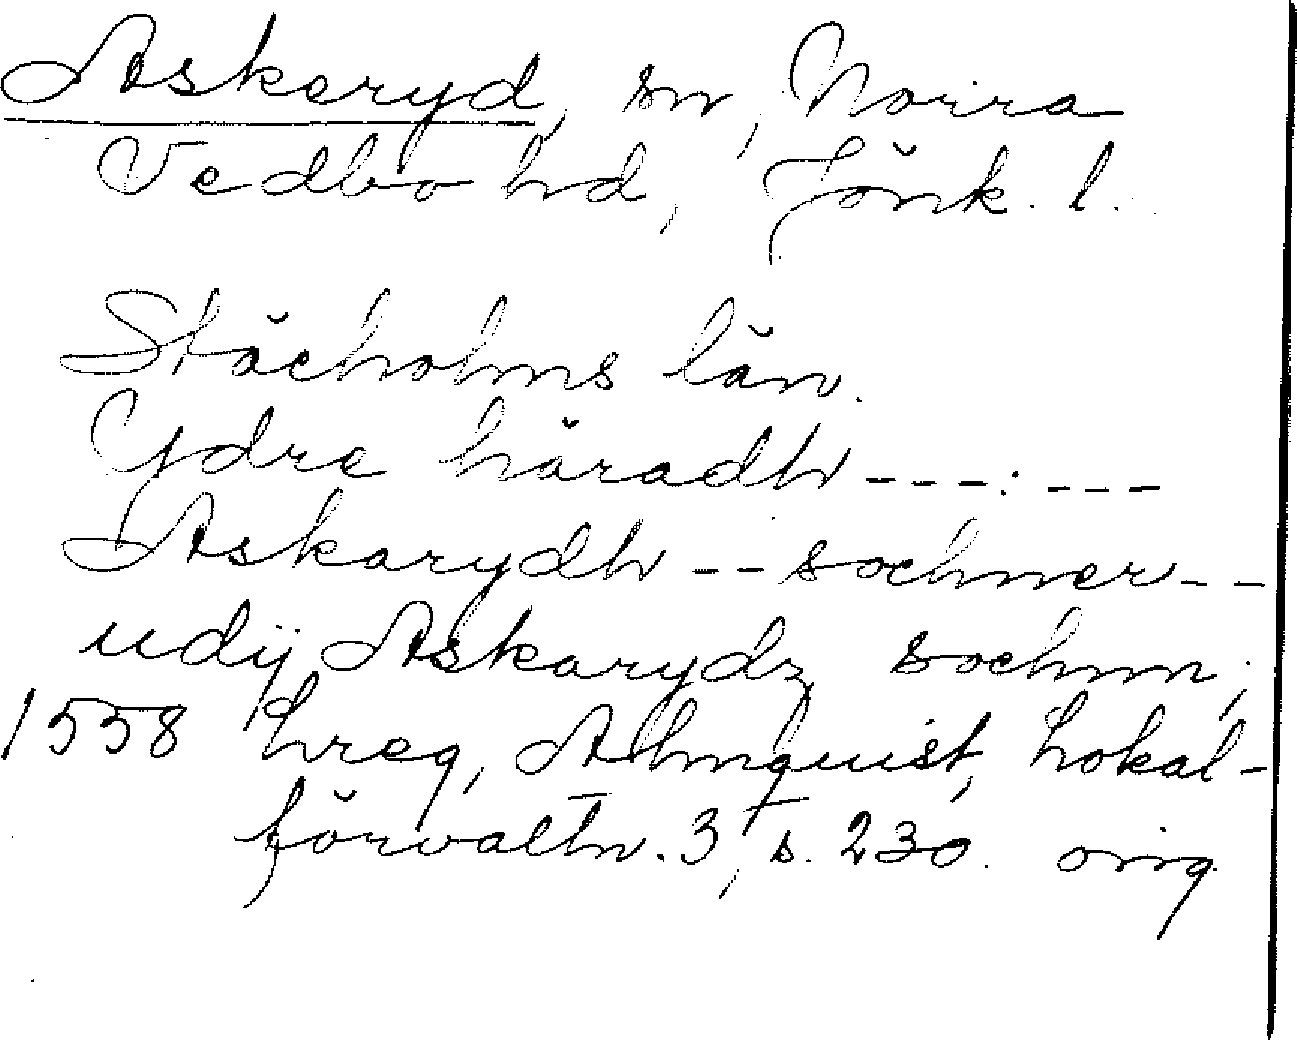 Askeryd, sn, Norra
Vedbo hd, Jönk. l.
Stächolms län.
Ydre häradh ---. ---
Askarydh -- sochner --
udij Askarydz sochnn;
1558 hreg, Almquist, Lokal-
förvaltn. 3, s. 230. orig.